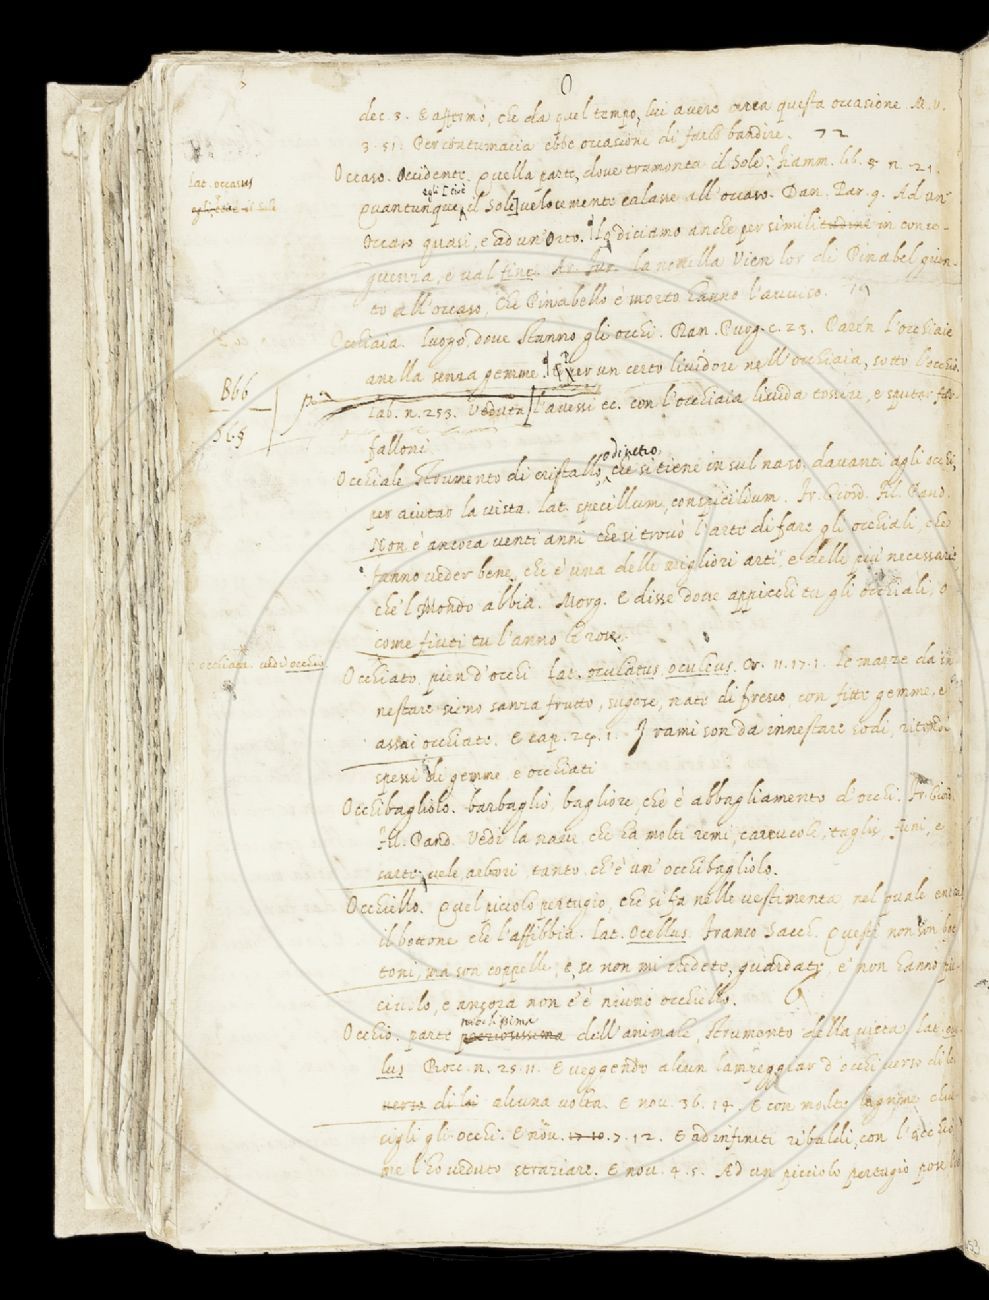 O
dec. 3. E affermò, che da quel tempo, lui avere avea questa occasione. M. V.
3. 51. Per contumacia ebbe occasione di farlo bandire. 72
Occaso. Occidente. quella parte, dove tramonta il Sole. Fiamm. lib. 5 n. 21.
lat. occasus
egli cioè
quantunque il Sole] velocemente calasse all'occaso. Dan. Par. 9. Ad un
occaso quasi, e ad un'Orto. diciamo anche per similitudine in conse-
guenza, e val fine. Ar. Fur. la novella Vien lor di Pinabel giun-
to all'occaso, che Pinabello è morto hanno l'avviso. 19
Occhiaia. luogo, dove stanno gli occhi. Dan. Purg. c. 23. Parén l'occhiaie
anella senza gemme. per un certo lividore nell'occhiaia, sotto l'occhio.
B66
lab. n. 253. Veduta l'avessi ec. con l'occhiaia livida tossire, e sputar far-
falloni
odi vetro
Occhiale Strumento di cristallo, che si tiene in sul naso davanti agli occhi,
per aiutar la vista. lat. specillum, conspicilium. Fr. Giord. Pred.
Non è ancora venti anni che si trovò l'arte di fare gli occhiali, che
fanno veder bene, che è una delle migliori arti, e delle più necessarie
che'l Mondo abbia. Morg. E disse dove appicchi tu gli occhiali, o
come fiuti tu l'anno
occhiata. vedi occhio
Occhiato, pien d'occhi lat. oculatus, oculeus. Cr. 11. 17. 1. le mazze da in
nestare sieno sanza frutto, sugose, nate di fresco, con fitte gemme, e
assai occhiate. E cap. 24. 1. I rami son da innestare sodi, ritondi
spessi di gemme, e occhiati
Occhibagliolo. barbaglio, bagliore, che è abbagliamento d'occhi. Fr. Giord.
Pred. Vedi la nave che ha molti remi, carrucole, taglie, funi, e
sarte, vele, arbori, tanto, ch'è un'occhibagliolo.
Occhiello. Quel piccolo pertugio, che si fa nelle vestimenta nel quale entra
il bottone che l'affibbia. lat. Ocellus. Franco Sacch. Questi non son bot
toni, ma son coppelle; e, se non mi credete, guardate, e' non hanno pic-
ciuolo, e ancora non c'è niuno occhiello.
nobilissima
Occhio. parte preziosissima dell'animale, Strumento della vista, lat. ocu
lus Bocc. n. 25. 11. E veggendo alcun lampeggiar d'occhi verso di lei
verso di lei alcuna volta. E nov. 36. 14. E con molte lagrime chiu
sigli gli occhi. E nov. 17. 10. 7. 12. E ad infiniti ribaldi, con l'occhio
me l'ho veduto straziare. E nov. 4. 5. Ad un picciolo pertugio pose